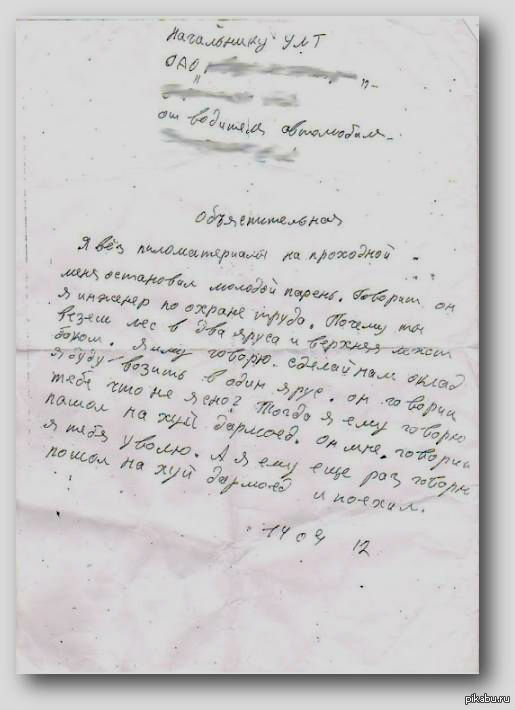 Начальнику УМТ
ОАО
от водителя автомобиля
Объястительная
Я вёз пиломатериалы на проходной
меня остановил молодой парень. Говорит он
я инженер по охране труда. Почему ты
везеш лес в два яруса и верхняя лежит
боком. Я иму говорю. сделай нам оклад
я буду возить в один ярус. он говорит
тебе что не ясно? Тогда я ему говорю
пашол на хуй дармоед. он мне говорит
я тебя уволю. А я ему еще раз говорю
пошол на хуй дармоед и поехал.
14 09 12
pikabu.ru